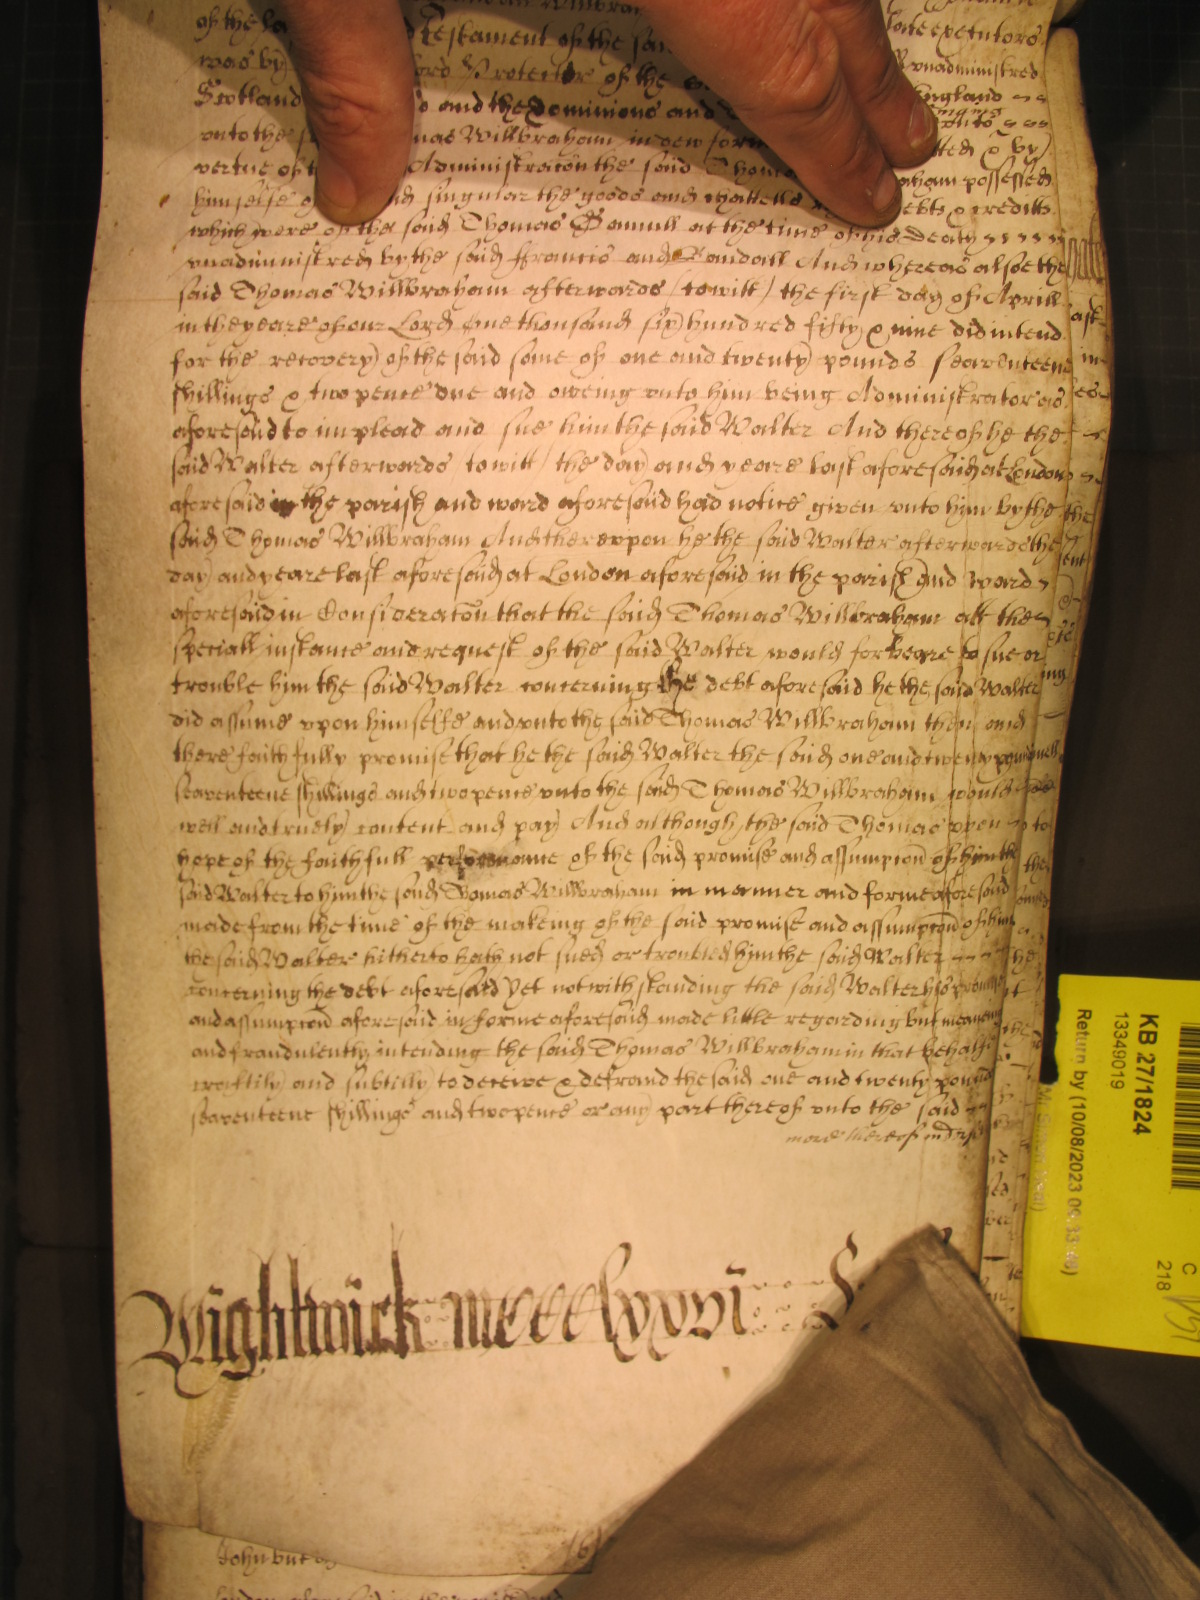 Willbra
of the la Testament of the sai late executors
was by Lord Protector of the vnadministred
Scotland and the Dominions and England
vnto the mas Willbraham in dew form tted & by
vertue of t Administracon the said Thoma aham possessed
himselfe o nd singular the goods and chattells debts & creditts
which were of the said Thomas Gamull at the time of his Death
vnadministred by the said ffrancis and Randall And whereas alsoe the
said Thomas Willbraham afterwards / to witt / the first day of Aprill
in the yeare of our Lord One thousand six hundred fifty & nine did intend
for the recovery of the said some of one and twenty pounds seaventeene
shillings & two pence due and oweing vnto him being Administrator as
aforesaid to implead and sue him the said Walter And thereof he the
said Walter afterwards to witt / the day and yeare last aforesaid at London
aforesaid in the parish and ward aforesaid had notice given vnto him by the
said Thomas Willbraham And therevpon he the said Walter afterwards the
day and yeare last aforesaid at London aforesaid in the parish and ward
aforesaid in Consideracon that the said Thomas Willbraham att the
speciall instance and request of the said Walter would forbeare to sue or
trouble him the said Walter concerning the debt aforesaid he the said Walter
did assume vpon himselfe and vnto the said Thomas Willbraham then and
there faithfully promise that he the said Walter the said one and twenty pounds
seaventeene shillings and two pence vnto the said Thomas Willbraham would
well and truely content and pay And although the said Thomas vpon
hope of the faithfull performance of the said promise and assumpcon of him the
said Walter to him the said Thomas Willbraham in manner and forme aforesaid
made from the time of the makeing of the said promise and assumpcon of him
the said Walter hitherto hath not sued or troubled him the said Walter
concerning the debt aforesaid Yet notwithstanding the said Walter his promise
and assumpcon aforesaid in forme aforesaid made little regarding but meaneing
and fraudulently intending the said Thomas Willbraham in that behalfe
craftily and subtilly to deceive & defraud the said one and twenty pounds
seaventeene shillings and two pence or any part thereof vnto the said
more thereof in dorso
Wightwick mcccclxxvi
John but
KB 27/1824
13349019
Return by (10/08/2023 09:33:46)
C
218